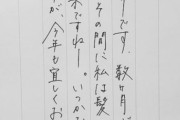 です。数ヶ月
その間に私は髪
ですねー。いつか
が、今年も宜しくお